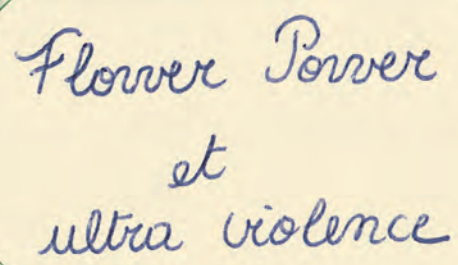 Flower Power
et
ultra violence